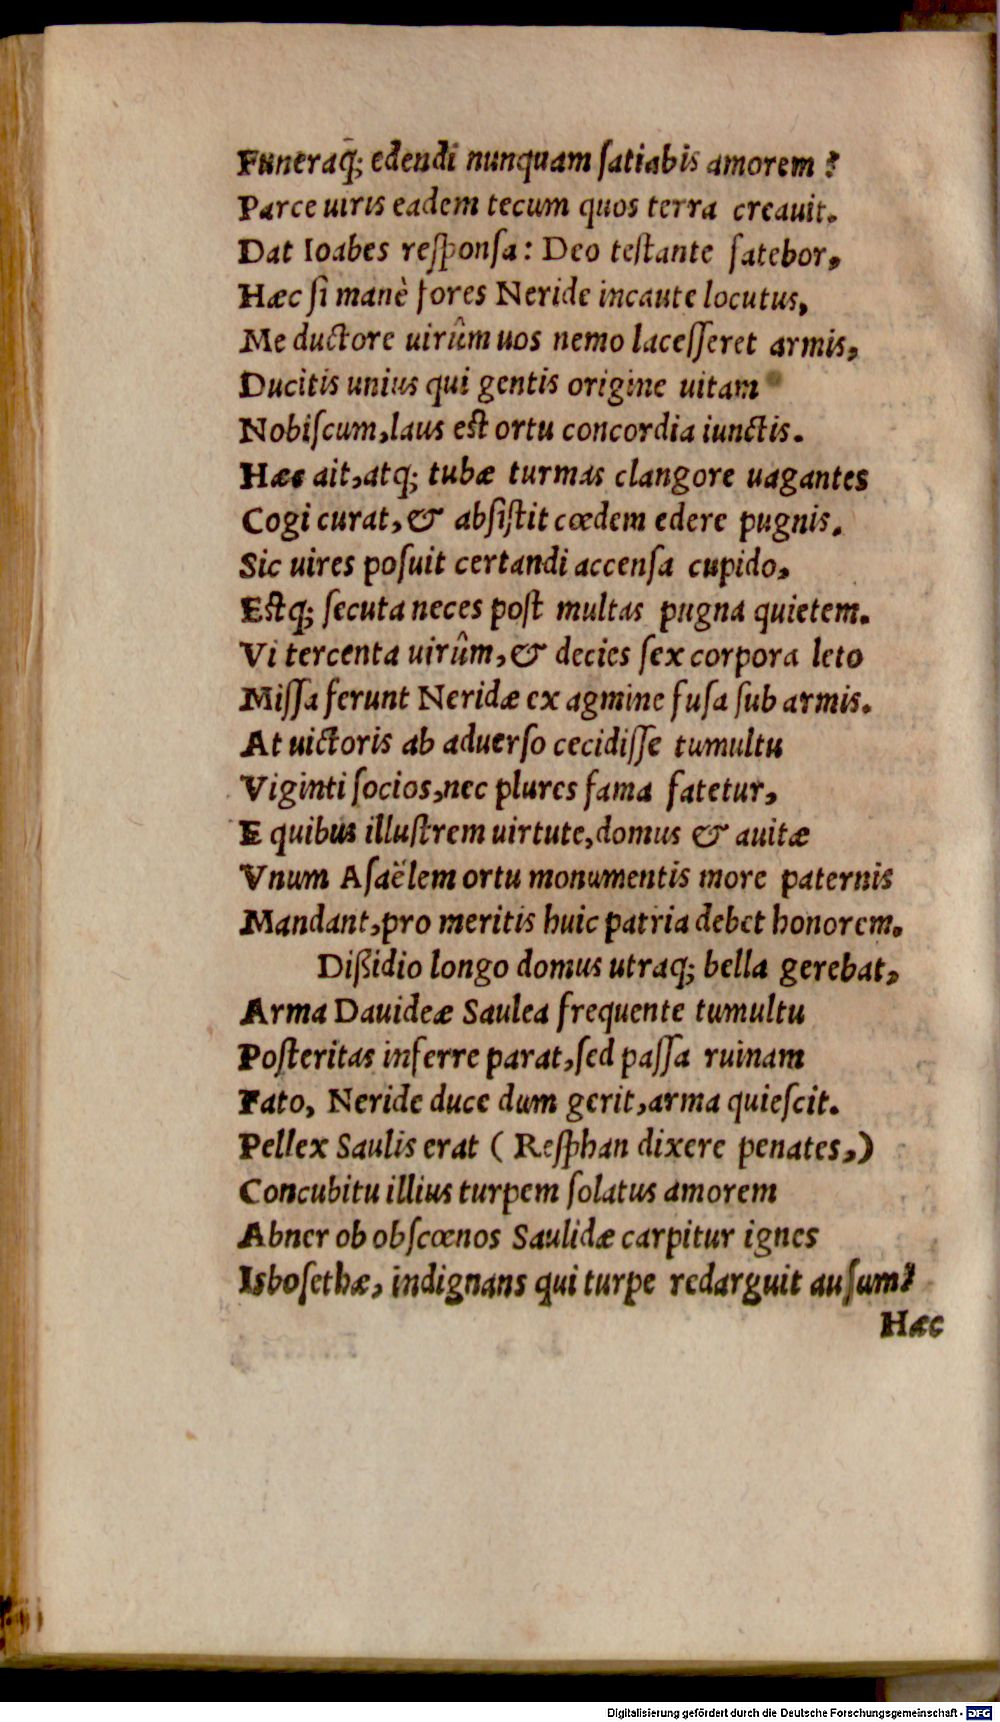 Funeraq̃; edendi nunquam ſatiabis amorem?
Parce uiris eadem tecum quos terra creauit.
Dat Ioabes reſponſa: Deo teſtante fatebor,
Hæc ſi manè fores Neride incaute locutus,
Me ductore uirûm uos nemo laceſſeret armis,
Ducitis unius qui gentis origine uitam
Nobiſcum, laus eſt ortu concordia iunctis.
Hæc ait, atq; tubæ turmas clangore uagantes
Cogi curat, & abſiſtit cœdem edere pugnis.
Sic uires poſuit certandi accenſa cupido,
Eſtq; ſecuta neces poſt multas pugna quietem.
Vi tercenta uirûm, & decies ſex corpora leto
Miſſa ferunt Neridæ ex agmine fuſa ſub armis.
At uictoris ab aduerſo cecidiſſe tumultu
Viginti ſocios, nec plures fama fatetur,
E quibus illuſtrem uirtute, domus & auitæ
Vnum Aſaëlem ortu monumentis more paternis
Mandant, pro meritis huic patria debet honorem.
Dißidio longo domus utraq; bella gerebat,
Arma Dauideæ Saulea frequente tumultu
Poſteritas inferre parat, ſed paſſa ruinam
Fato, Neride duce dum gerit, arma quieſcit.
Pellex Saulis erat (Reſphan dixere penates,)
Concubitu illius turpem ſolatus amorem
Abner ob obſcœnos Saulidæ carpitur ignes
Isboſethæ, indignans qui turpe redarguit auſum?
Hæc
Digitalisierung gefördert durch die Deutsche Forschungsgemeinschaft - DFG